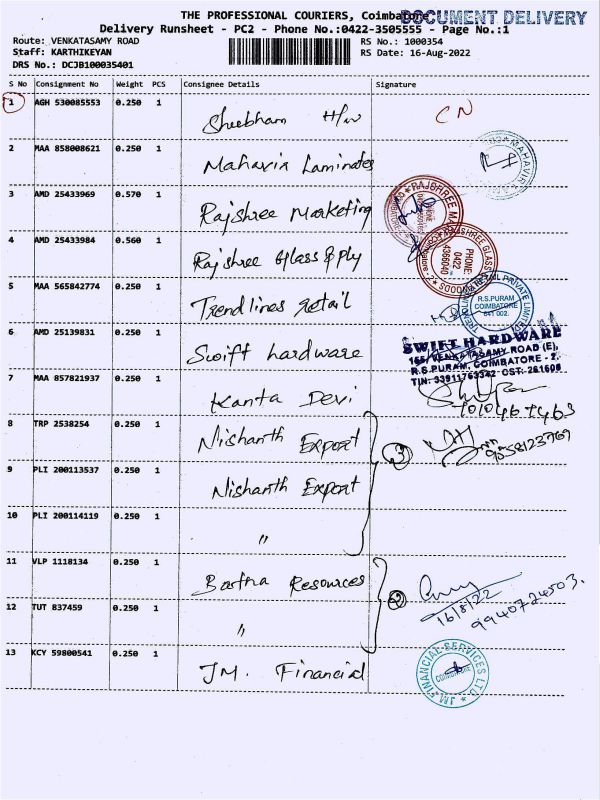 THE PROFESSIONAL COURIERS, Coimbatore
DOCUMENT DELIVERY
Delivery Runsheet - PC2 - Phone No.:0422-3505555 - Page No.:1
Route: VENKATASAMY ROAD RS No.: 1000354
Staff: KARTHIKEYAN RS Date: 16-Aug-2022
DRS No.: DCJB100035401
S No Consignment No Weight PCS Consignee Details Signature
1 AGH 530085553 0.250 1 Shubham H/w CN
2 MAA 858008621 0.250 1 Mahavir Laminates
MAHAVIR
3 AMD 25433969 0.570 1 Rajshree Marketing
RAJSHREE
4 AMD 25433984 0.560 1 Rajshree Glass & Ply
PHONE
0422
4366040
5 MAA 565842774 0.250 1 Trendlines retail
RETAIL PRIVATE LIMITED
R.S.PURAM
COIMBATORE
641 002.
6 AMD 25139831 0.250 1 Swift hardware
SWIFT HARDWARE
165, VENKATASAMY ROAD (E),
R.S.PURAM, COIMBATORE - 2.
TIN: 33911763342 CST: 261606
7 MAA 857821937 0.250 1 Kanta Devi
7010467463
8 TRP 2538254 0.250 1 Nishanth Export
3
9558123769
9 PLI 200113537 0.250 1 Nishanth Export
10 PLI 200114119 0.250 1 "
11 VLP 1118134 0.250 1 Bartha Resources
2
16/8/22
9940724503.
12 TUT 837459 0.250 1 "
13 KCY 59800541 0.250 1 JM. Financial
JM FINANCIAL SERVICES LTD
COIMBATORE